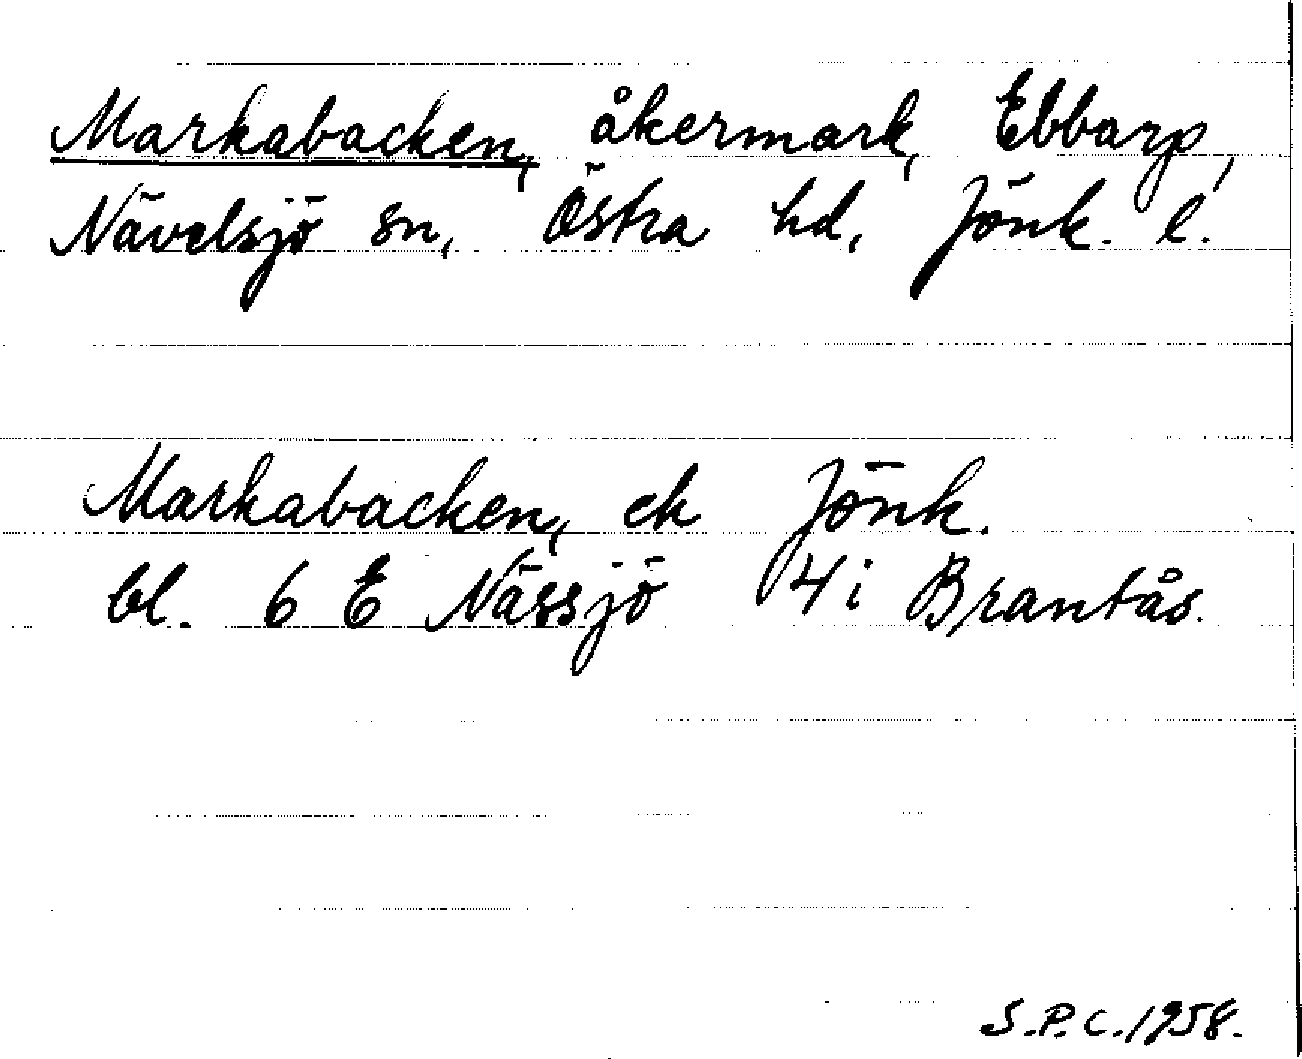 Markabacken, åkermark, Ebbarp,
Nävelsjö sn, Östra hd, Jönk. l.
Markabacken, ek Jönk.
bl. 6 E Nässjö 4 i Brantås.
S.P.C. 1958.